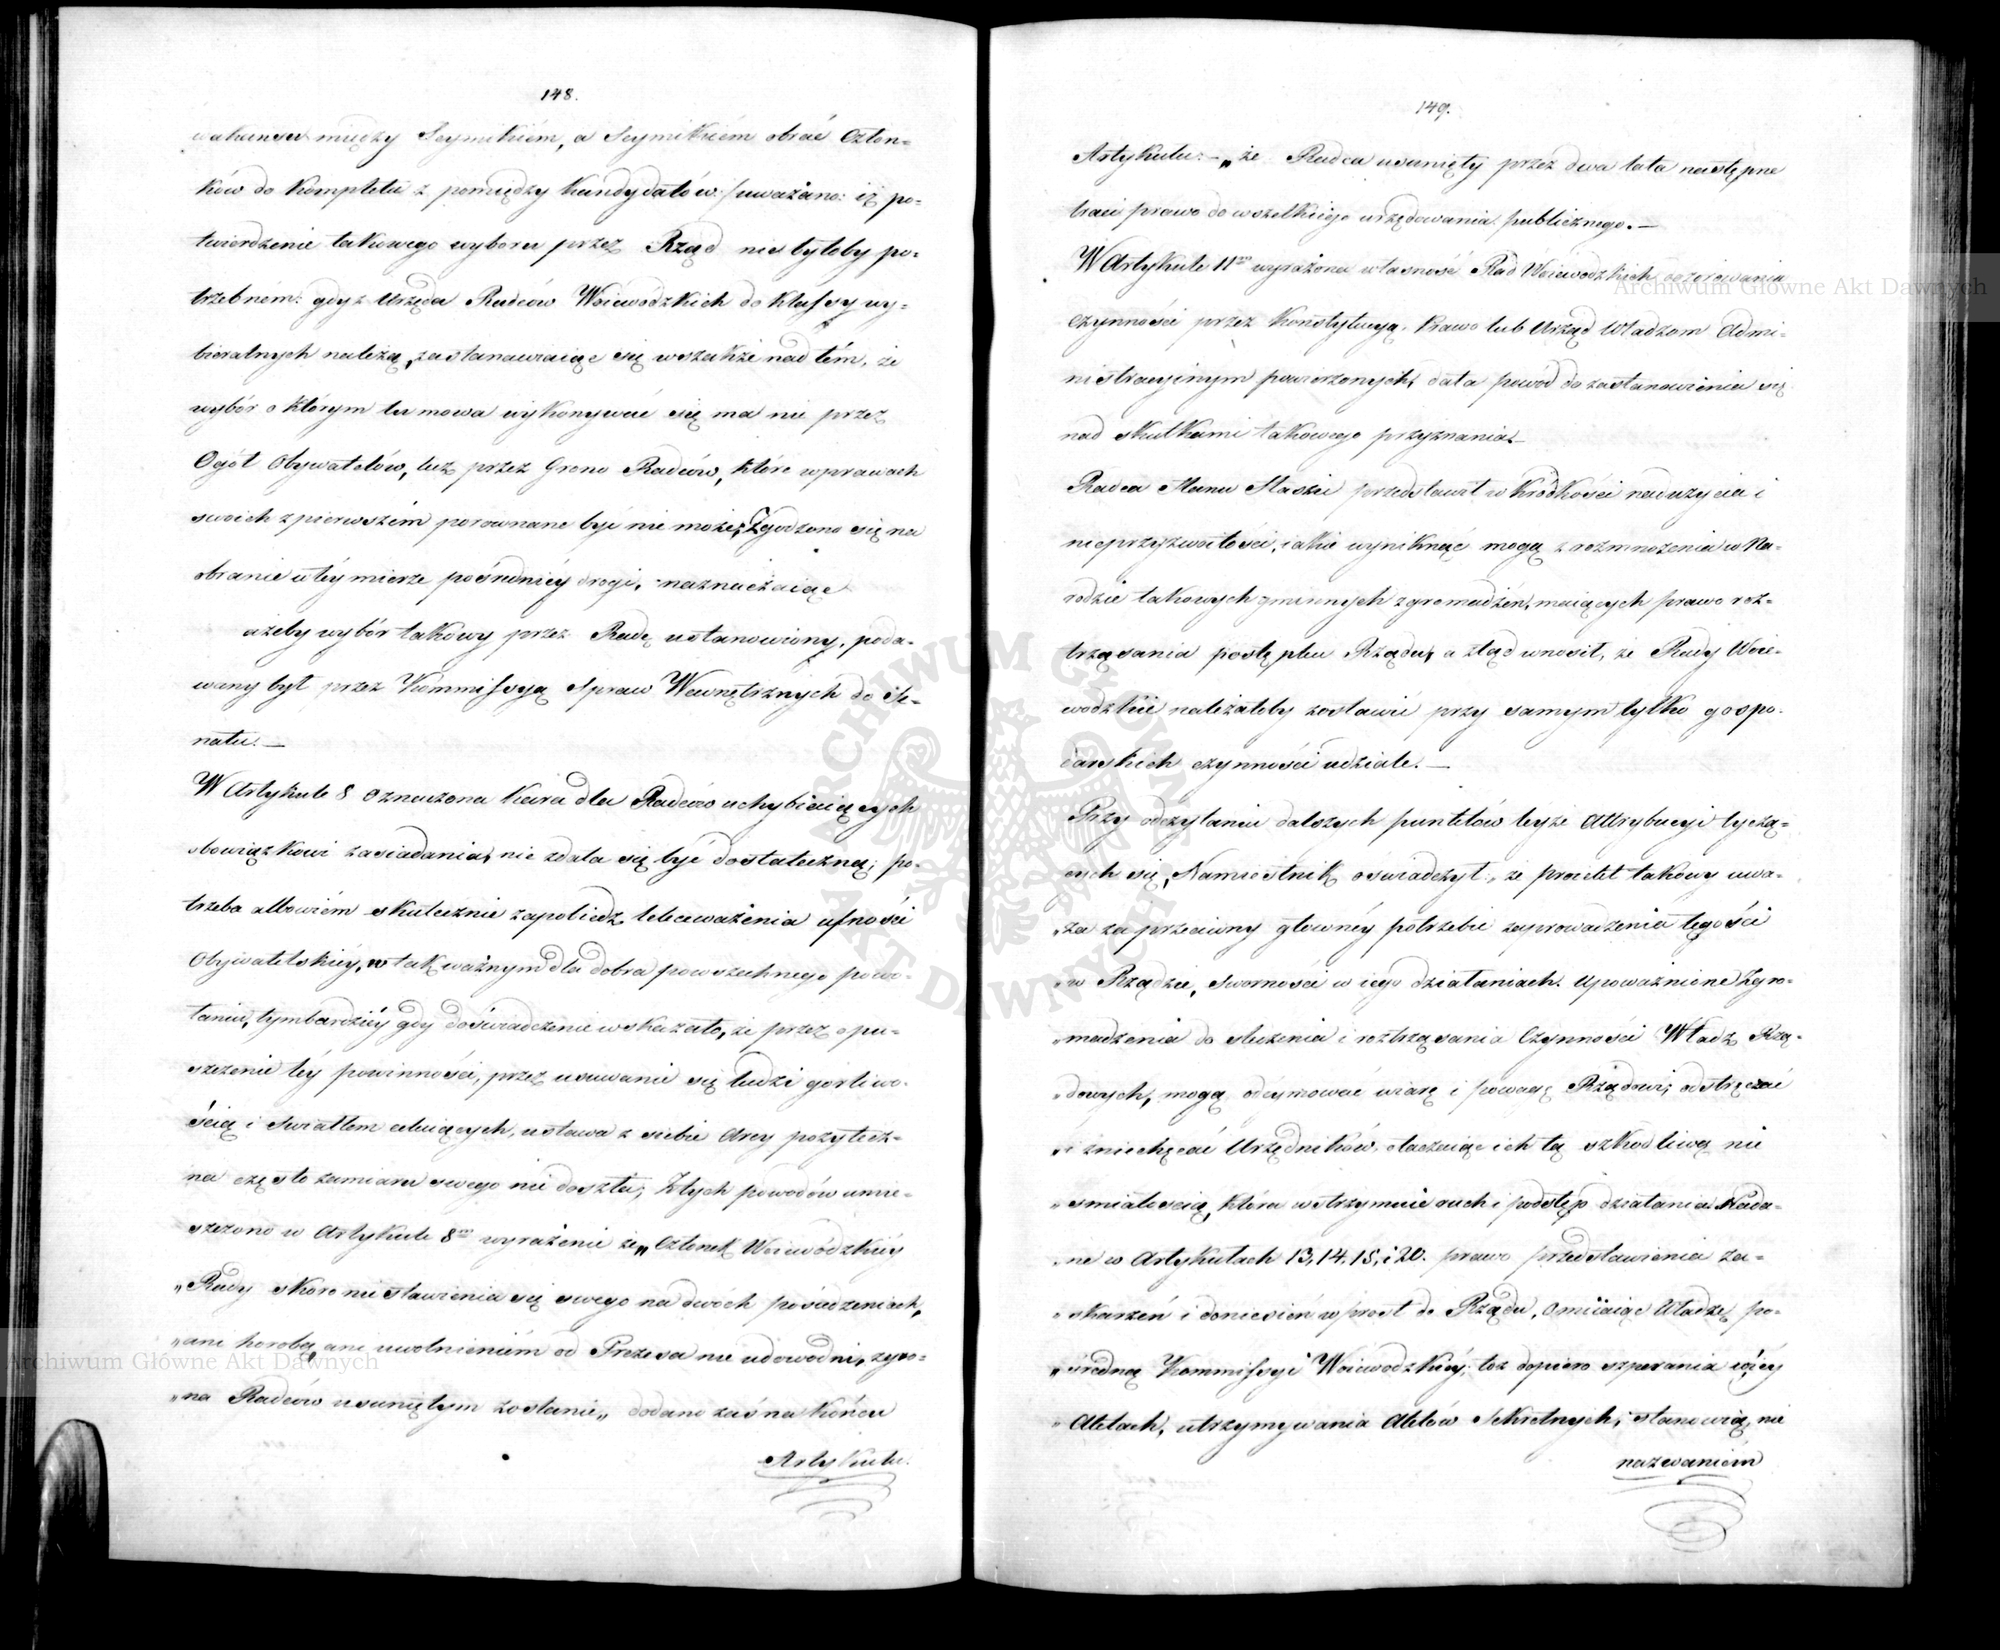 148.
wakansu między Seymikiém, a Seymikiém obrać Człon=
ków do kompletu z pomiędzy kandydatów: uważano: iż po=
twierdzenie takowego wyboru przez Rząd nie byłoby po=
trzebnem: gdyż Urzęda Radców Woiewódzkich do klassy wy=
bieralnych należą, zastanawiaiąc się wszakże nad tém, że
wybór o którym tu mowa wykonywać się ma nie przez
Ogół Obywatelów, lecz przez Grono Radców, które w prawach
swoich z pierwszém porownane być nie może; Zgodzono się na
obranie w téy mierze pośredniéy drogi, naznaczaiąc
ażeby wybór takowy przez Radę ustanowiony, poda=
wany był przez Kommissyą Spraw Wewnętrznych do Se=
natu. —
W Artykule 8 oznaczona kara dla Radców uchybiaiących
obowiązkowi zasiadania, nie zdała się być dostateczną; po=
trzeba albowiém skutecznie zapobiedz lekceważenia ufności
Obywatelskiéy, w tak ważnym dla dobra powszechnego powo=
łaniu, tymbardziéy gdy doświadczenie wskazało, że przez opu=
szczenie téy powinności, przez usuwanie się ludzi gorliwo=
ścią i światłem celuiących, ustawa z siebie arcy pożytecz=
na często zamiaru swego nie doszła; Z tych powodów umie=
szczono w Artykule 8m wyrażenie że „Członek Woiewódzkiéy
„Rady skoro nie stawienia się swego na dwóch posiedzeniach,
„ani horobą ani uwolnieniém od Prezesa nie udowodni, z gro=
„na Radców usuniętym zostanie„ dodano zaś na końcu
Artykułu.
149.
Artykułu. — „że Radca usunięty przez dwa lata następne
traci prawo do wszelkiego urzędowania publicznego. —
W Artykule 11m wyrażona własność Rad Woiewodzkich oceniowania
czynności przez Konstytucyą, Prawo lub Urząd Władzom Admi=
nistracyinym powierzonych, dała powód do zastanowienia się
nad skutkami takowego przyznania. —
Radca Stanu Staszic przedstawił w krótkości nadużycia i
nieprzyzwoitości, iakie wyniknąć mogą z rozmnożenia w Na=
rodzie takowych gminnych zgromadzeń, maiących prawo roz=
trząsania postępku Rządu, a ztąd wnosił, że Rady Woie=
wodzkie należałoby zostawić przy samym tylko gospo=
darskich czynności udziale. —
Przy odczytaniu dalszych punktów teyże Attrybucyi tyczą=
cych się, Namiestnik oświadczył: „że proiekt takowy uwa=
„ża za przeciwny głownéy potrzebie zaprowadzenia tęgości
„w Rządzie, sworności w iego działaniach. Upoważnione Zgro=
„madzenia do śledzenia i roztrząsania Czynności Władz Rzą=
„dowych, mogą odeymować wiarę i powagę Rządowi; odstręczać
„i zniechęcać Urzędników, otaczaiąc ich tą szkodliwą nie
„smiałością, która wstrzymuie ruch i postęp działania. Nada=
„ne w Artykułach 13, 14, 15, i 20. prawo przedstawienia za=
„skarżeń i doniesień wprost do Rządu, omiiaiąc Władzę po=
„średnią Kommissyi Woiewodzkiéy; toż dopiero szperania w iéy
„Aktach, utrzymywania Aktów Sekretnych, stanowią nie
nazwaniém